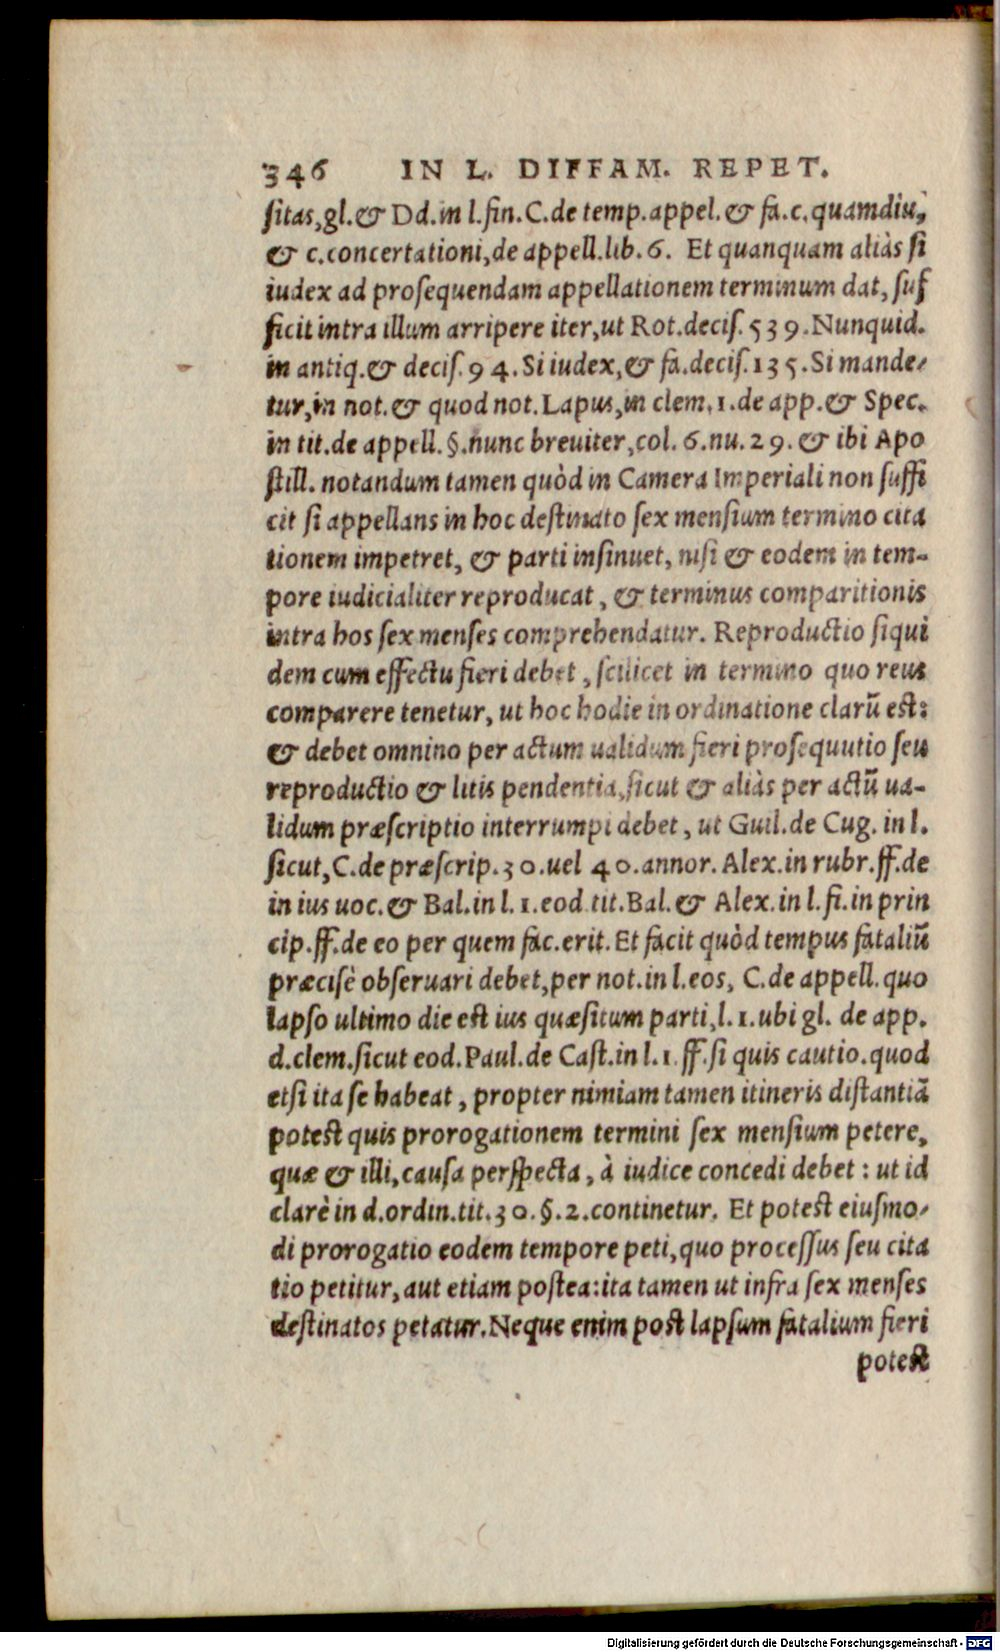 346 IN L. DIFFAM. REPET.
sitas, gl. & Dd. in l. fin. C. de temp. appel. & fa. c. quamdiu,
& c. concertationi, de appell. lib. 6. Et quanquam aliàs si
iudex ad prosequendam appellationem terminum dat, suf
ficit intra illum arripere iter, ut Rot. decis. 539. Nunquid.
in antiq. & decis. 94. Si iudex, & fa. decis. 135. Si mande-
tur, in not. & quod not. Lapus, in clem. 1. de app. & Spec.
in tit. de appell. §. nunc breuiter, col. 6. nu. 29. & ibi Apo
still. notandum tamen quòd in Camera Imperiali non suffi
cit si appellans in hoc destinato sex mensium termino cita
tionem impetret, & parti insinuet, nisi & eodem in tem-
pore iudicialiter reproducat, & terminus comparitionis
intra hos sex menses comprehendatur. Reproductio siqui
dem cum effectu fieri debet, scilicet in termino quo reus
comparere tenetur, ut hoc hodie in ordinatione clarũ est:
& debet omnino per actum ualidum fieri prosequutio seu
reproductio & litis pendentia, sicut & aliàs per actũ ua-
lidum præscriptio interrumpi debet, ut Guil. de Cug. in l.
sicut, C. de præscrip. 30. uel 40. annor. Alex. in rubr. ff. de
in ius uoc. & Bal. in l. 1. eod. tit. Bal. & Alex. in l. fi. in prin
cip. ff. de eo per quem fac. erit. Et facit quòd tempus fataliũ
præcisè obseruari debet, per not. in l. eos, C. de appell. quo
lapso ultimo die est ius quæsitum parti, l. 1. ubi gl. de app.
d. clem. sicut eod. Paul. de Cast. in l. 1. ff. si quis cautio. quod
etsi ita se habeat, propter nimiam tamen itineris distantiã
potest quis prorogationem termini sex mensium petere,
quæ & illi, causa perspecta, à iudice concedi debet: ut id
clarè in d. ordin. tit. 30. §. 2. continetur. Et potest eiusmo-
di prorogatio eodem tempore peti, quo processus seu cita
tio petitur, aut etiam postea: ita tamen ut infra sex menses
destinatos petatur. Neque enim post lapsum fatalium fieri
potest
Digitalisierung gefördert durch die Deutsche Forschungsgemeinschaft - DFG